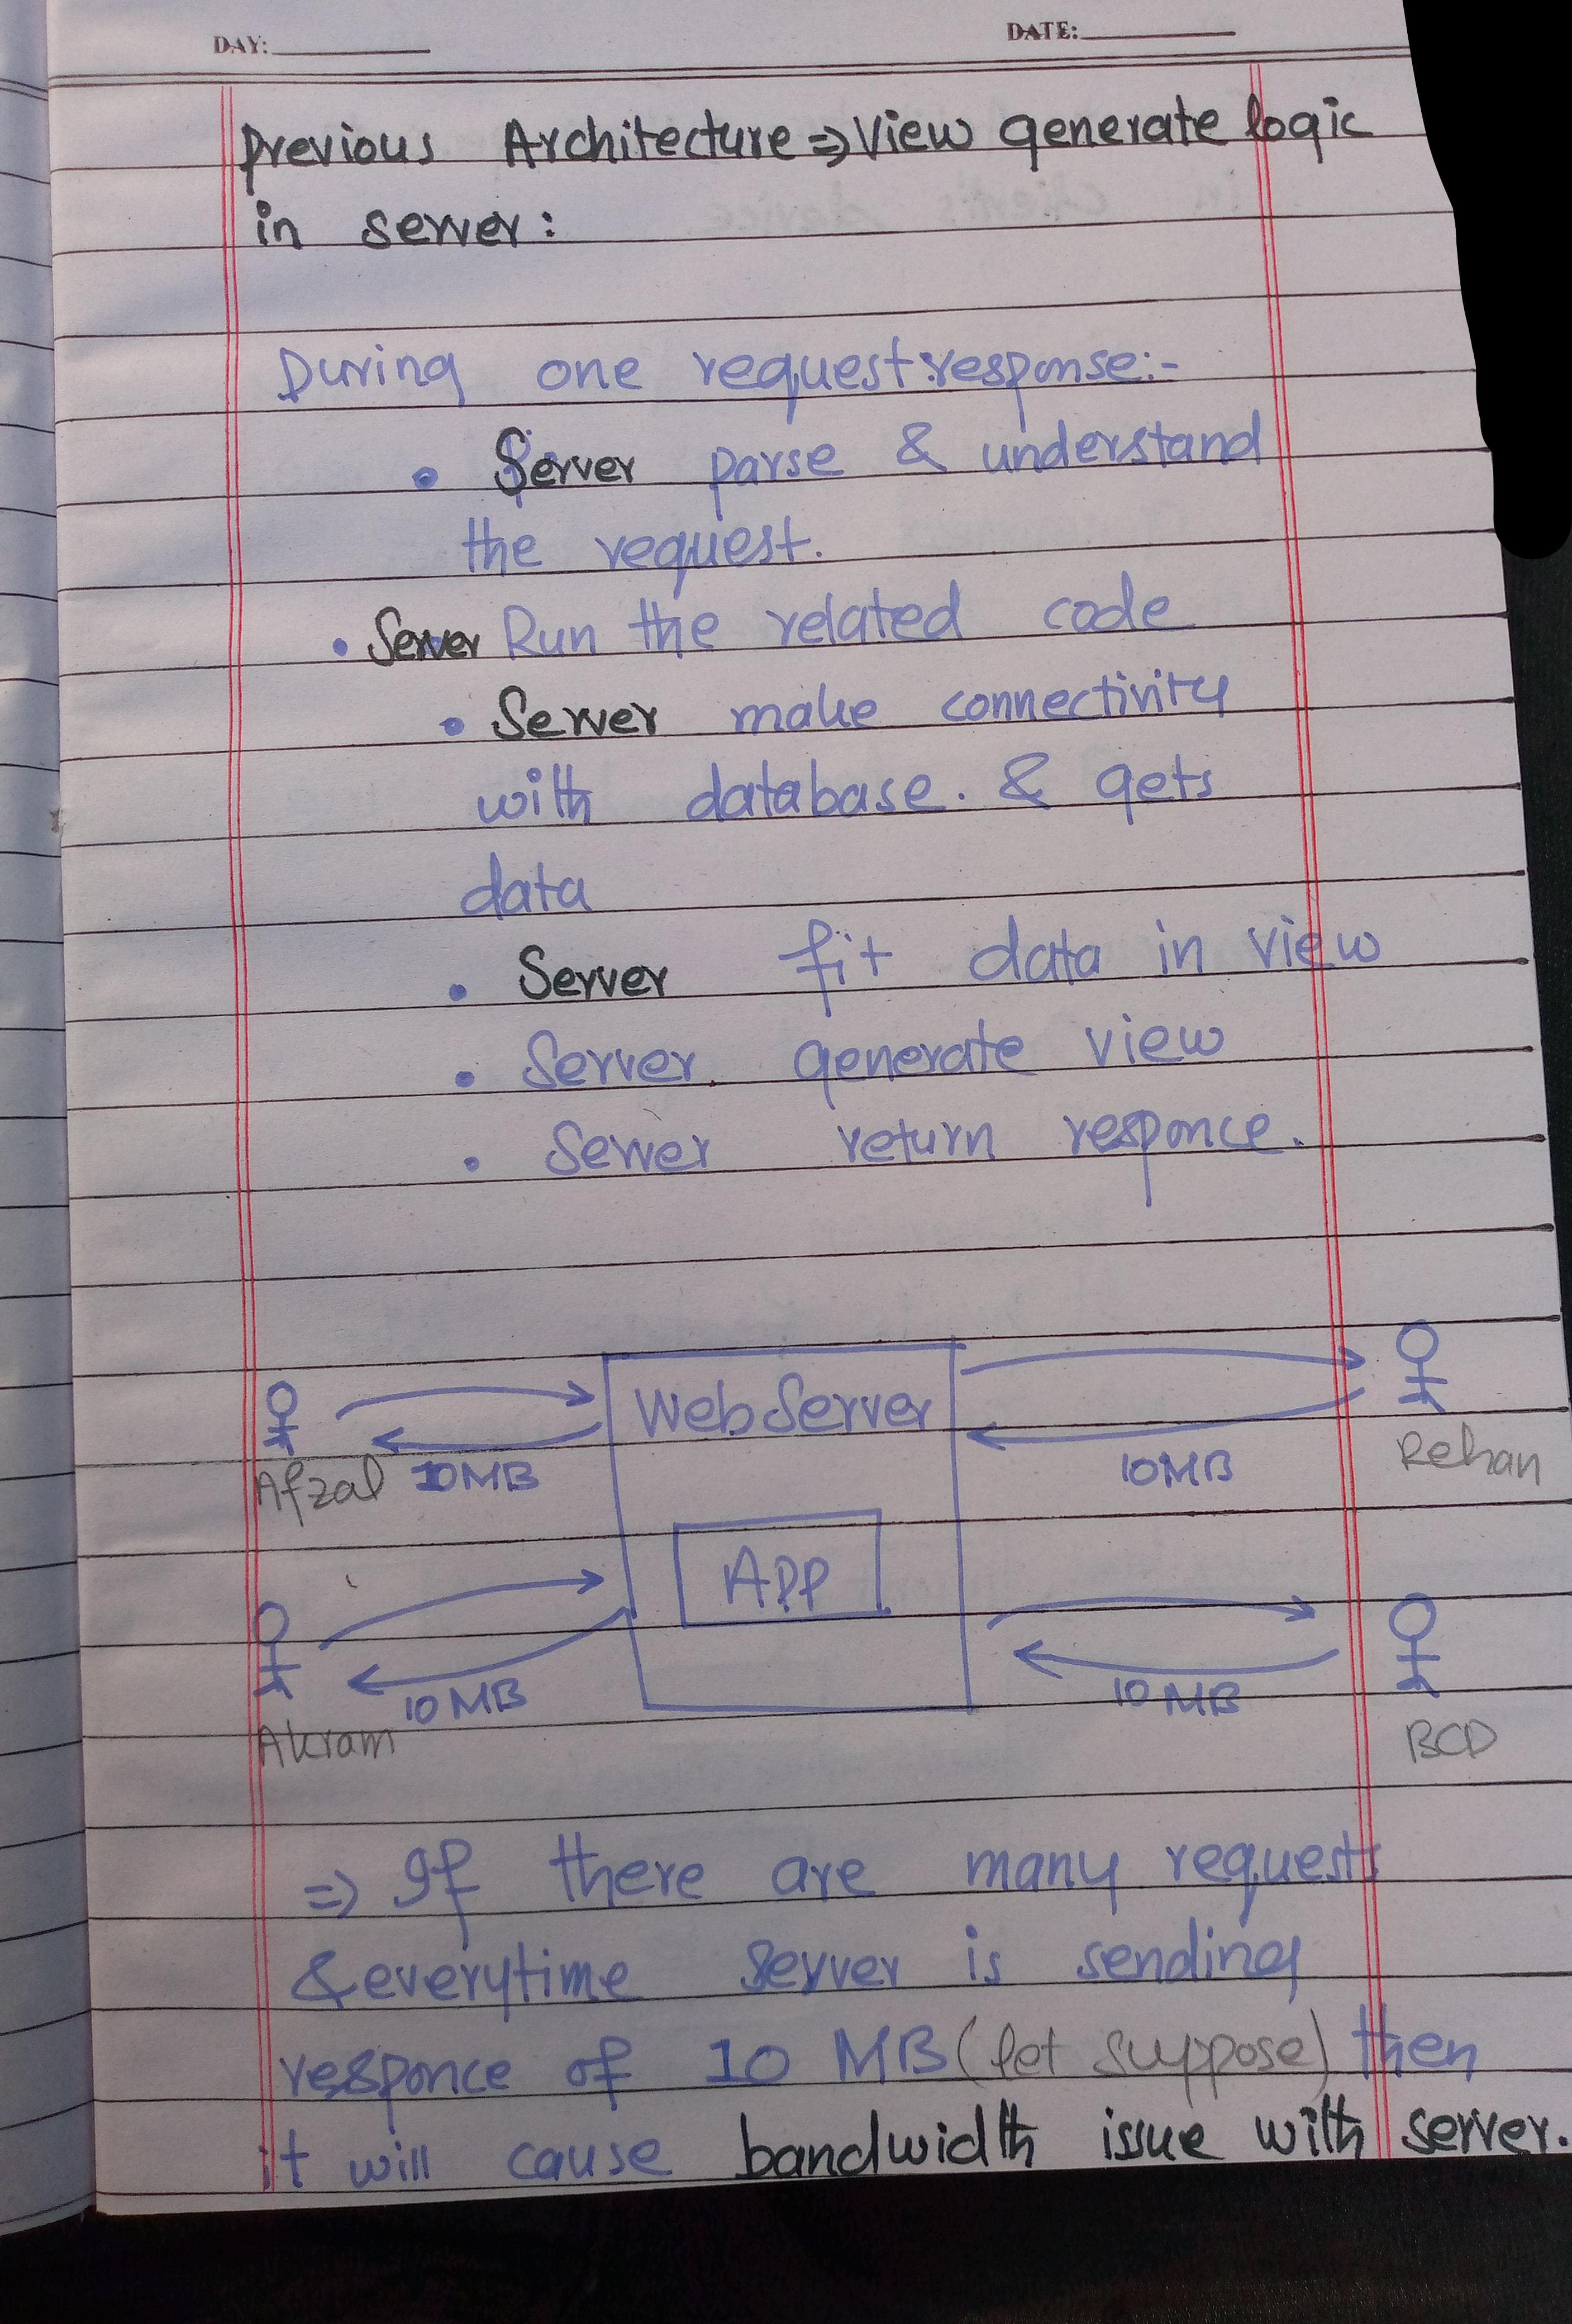 DAY:
DATE:
Previous Architecture => View generate logic
in server :
During one request:response:-
• Server parse & understand
the request.
• Server Run the related code
• Server make connectivity
with database. & gets
data
• Server fit data in view
• Server. generate view
• Server return responce.
Web Server
Afzal 10MB
10MB Rehan
App
10 MB
10 MB
Akram
BCD
=> If there are many requests
& everytime server is sending
responce of 10 MB (let suppose) then
it will cause bandwidth issue with server.